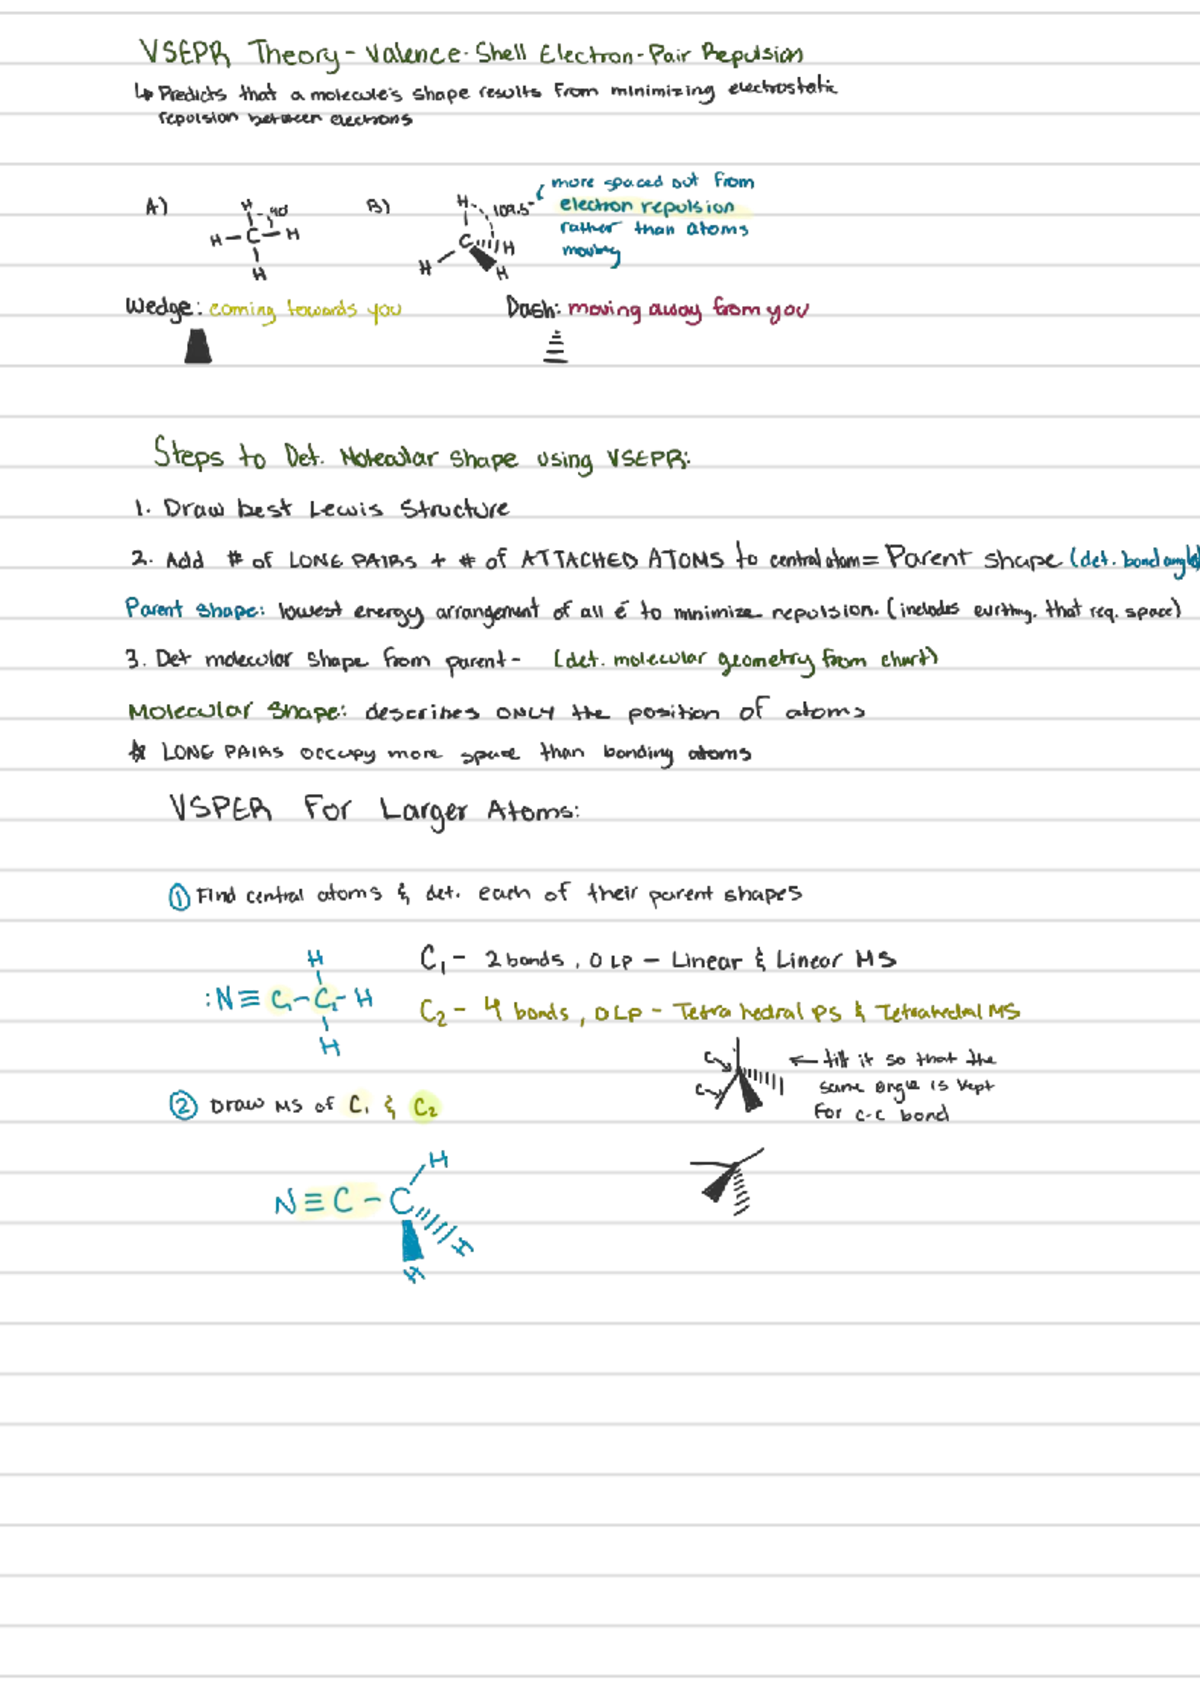 VSEPR Theory - Valence-Shell Electron-Pair Repulsion
↳ Predicts that a molecule's shape results from minimizing electrostatic
repulsion between electrons
A) H 90 H-C-H H
B) H 109.5° C H H H
more spaced out from
electron repulsion
rather than atoms
moving
Wedge: coming towards you
Dash: moving away from you
Steps to Det. Molecular Shape using VSEPR:
1. Draw best Lewis Structure
2. Add # of LONE PAIRS + # of ATTACHED ATOMS to central atom = Parent shape (det. bond angles)
Parent Shape: lowest energy arrangement of all e⁻ to minimize repulsion. (includes evrthng. that req. space)
3. Det molecular shape from parent - (det. molecular geometry from chart)
Molecular Shape: describes ONLY the position of atoms
☆ LONE PAIRS occupy more space than bonding atoms
VSPER For Larger Atoms:
① Find central atoms & det. each of their parent shapes
H
:N≡C-C-H
H
C₁ - 2 bonds, 0 LP - Linear & Linear MS
C₂ - 4 bonds, 0 LP - Tetrahedral PS & Tetrahedral MS
C
C
← tilt it so that the
same angle is kept
for c-c bond
② Draw MS of C₁ & C₂
H
N≡C-C
H
H